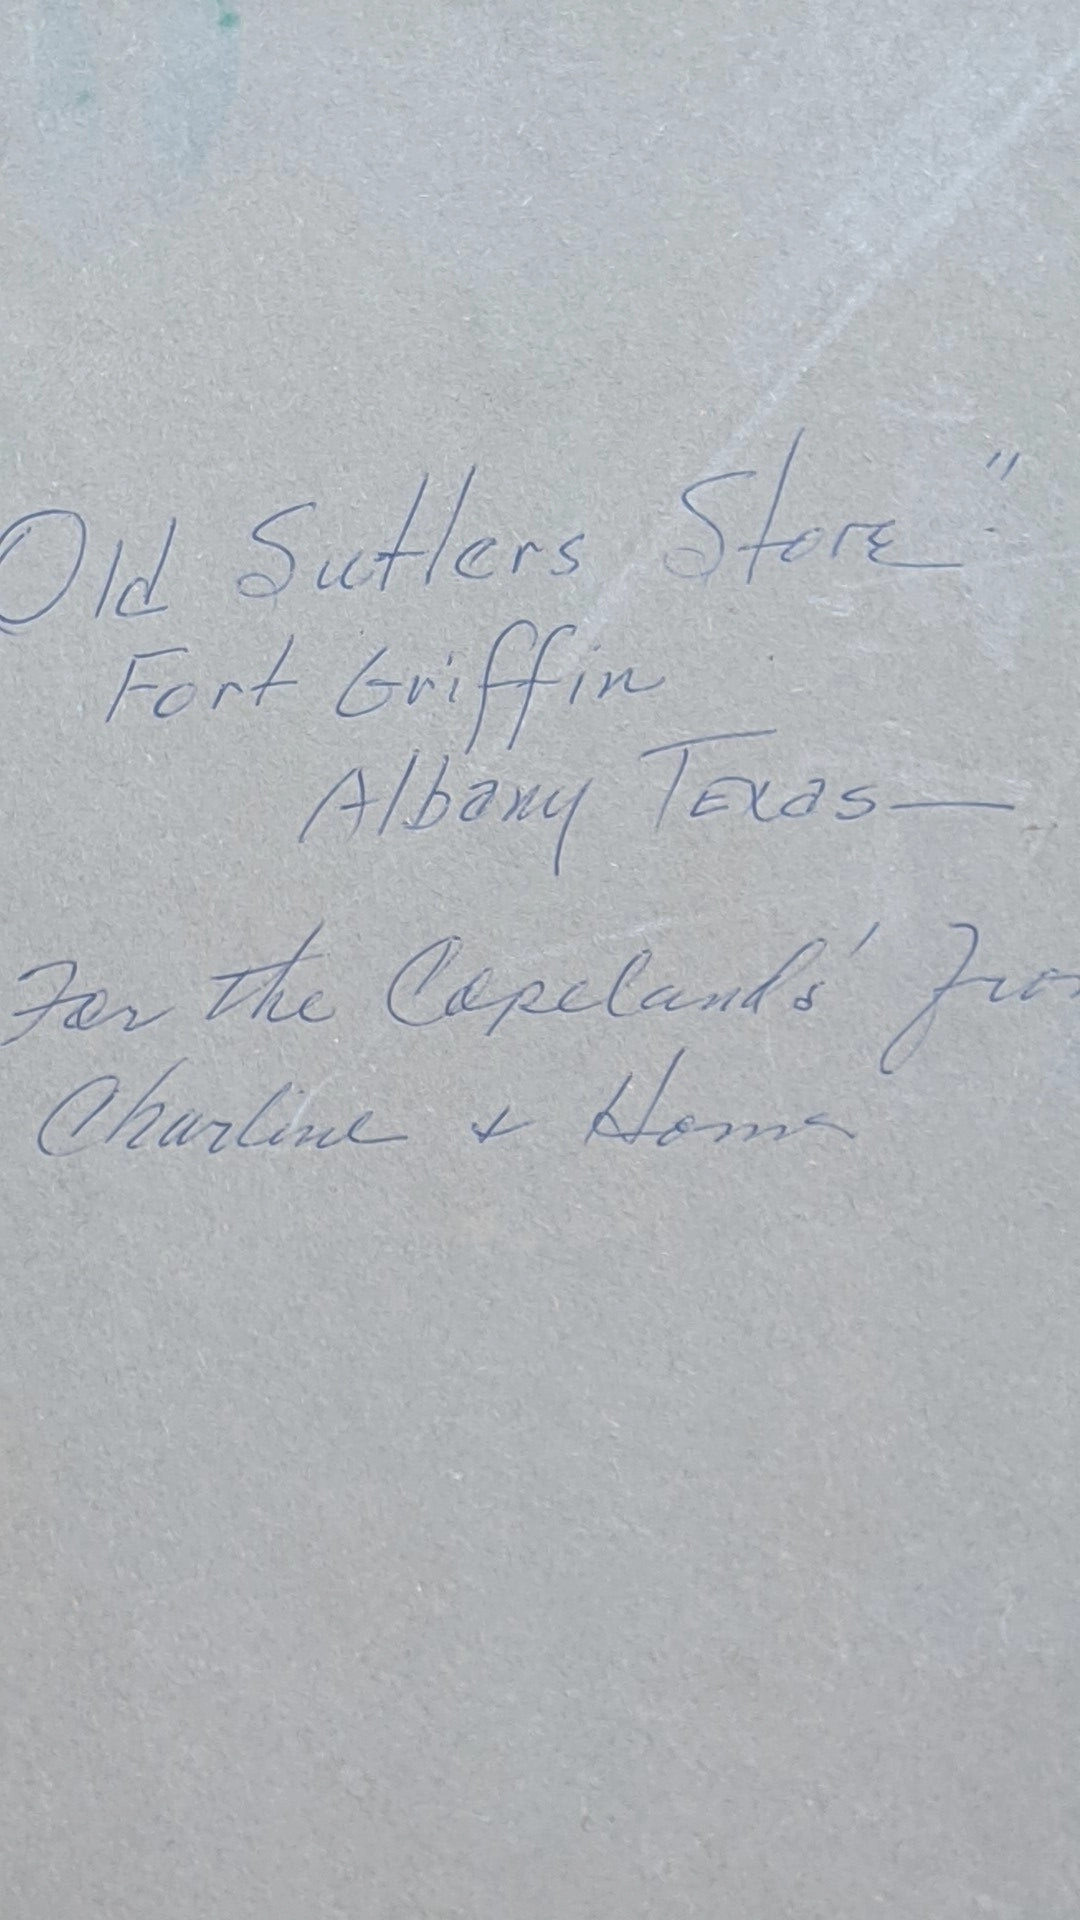 Old Sutlers Store"
Fort Griffin
Albany Texas—
For the Copelands' From
Charline + Homer